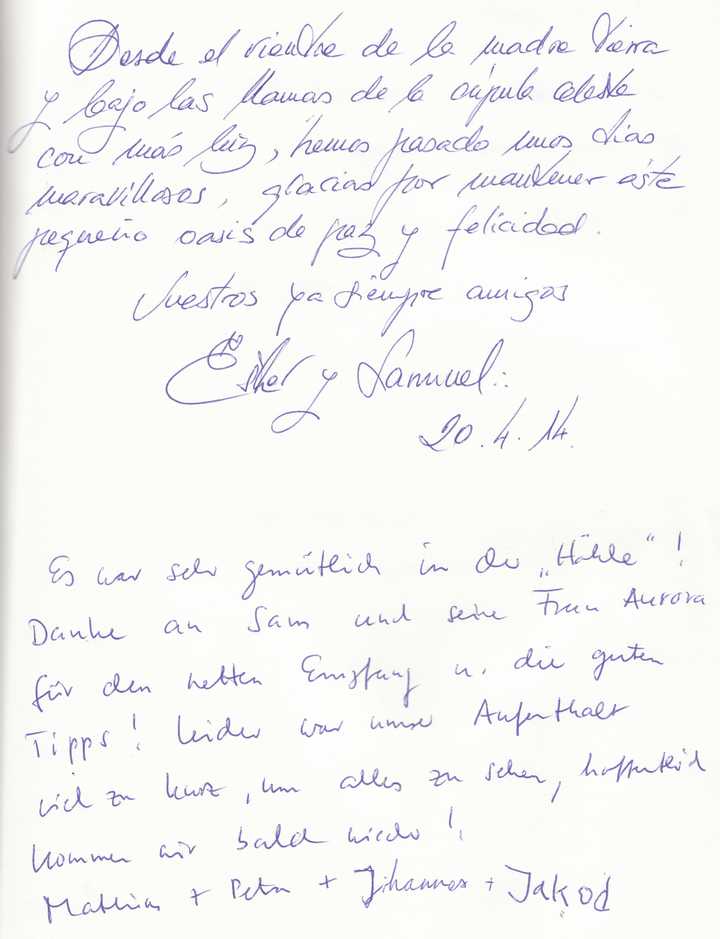 Desde el vientre de la madre tierra
y bajo las llamas de la cúpula celeste
con más luz, hemos pasado unos días
maravillosos, gracias por mantener éste
pequeño oasis de paz y felicidad.
Vuestros ya siempre amigos
Esther y Samuel.:
20.4.14.
Es war sehr gemütlich in der „Höhle“!
Danke an Sam und seine Frau Aurora
für den netten Empfang u. die guten
Tipps! Leider war unser Aufenthalt
viel zu kurz, um alles zu sehen, hoffentlich
kommen wir bald wieder!
Mathias + Petra + Johannes + Jakob